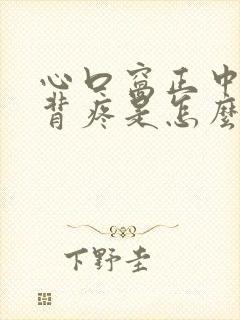 心口窝正中
背疼是怎麽
下野圭